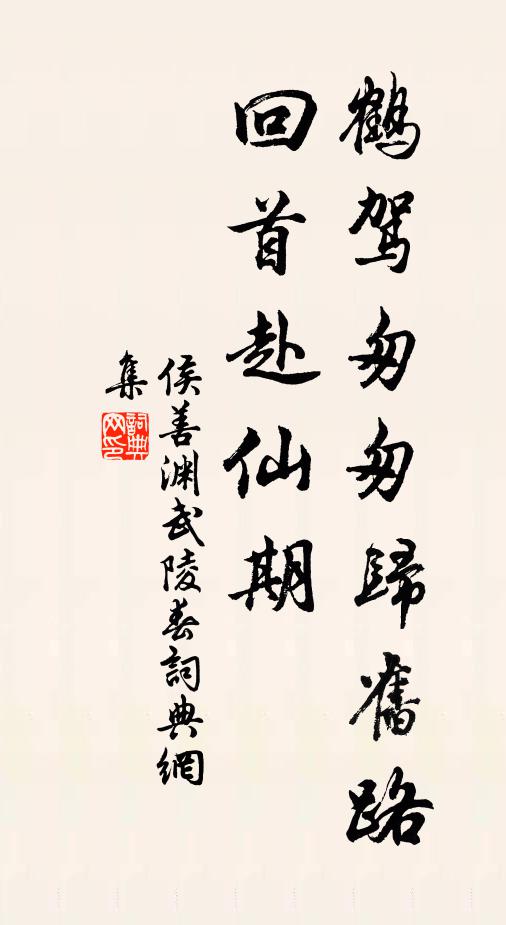 鶴駕匆匆歸舊路
回首赴仙期
侯善渊武陵春詞典網
集
詞典
网印